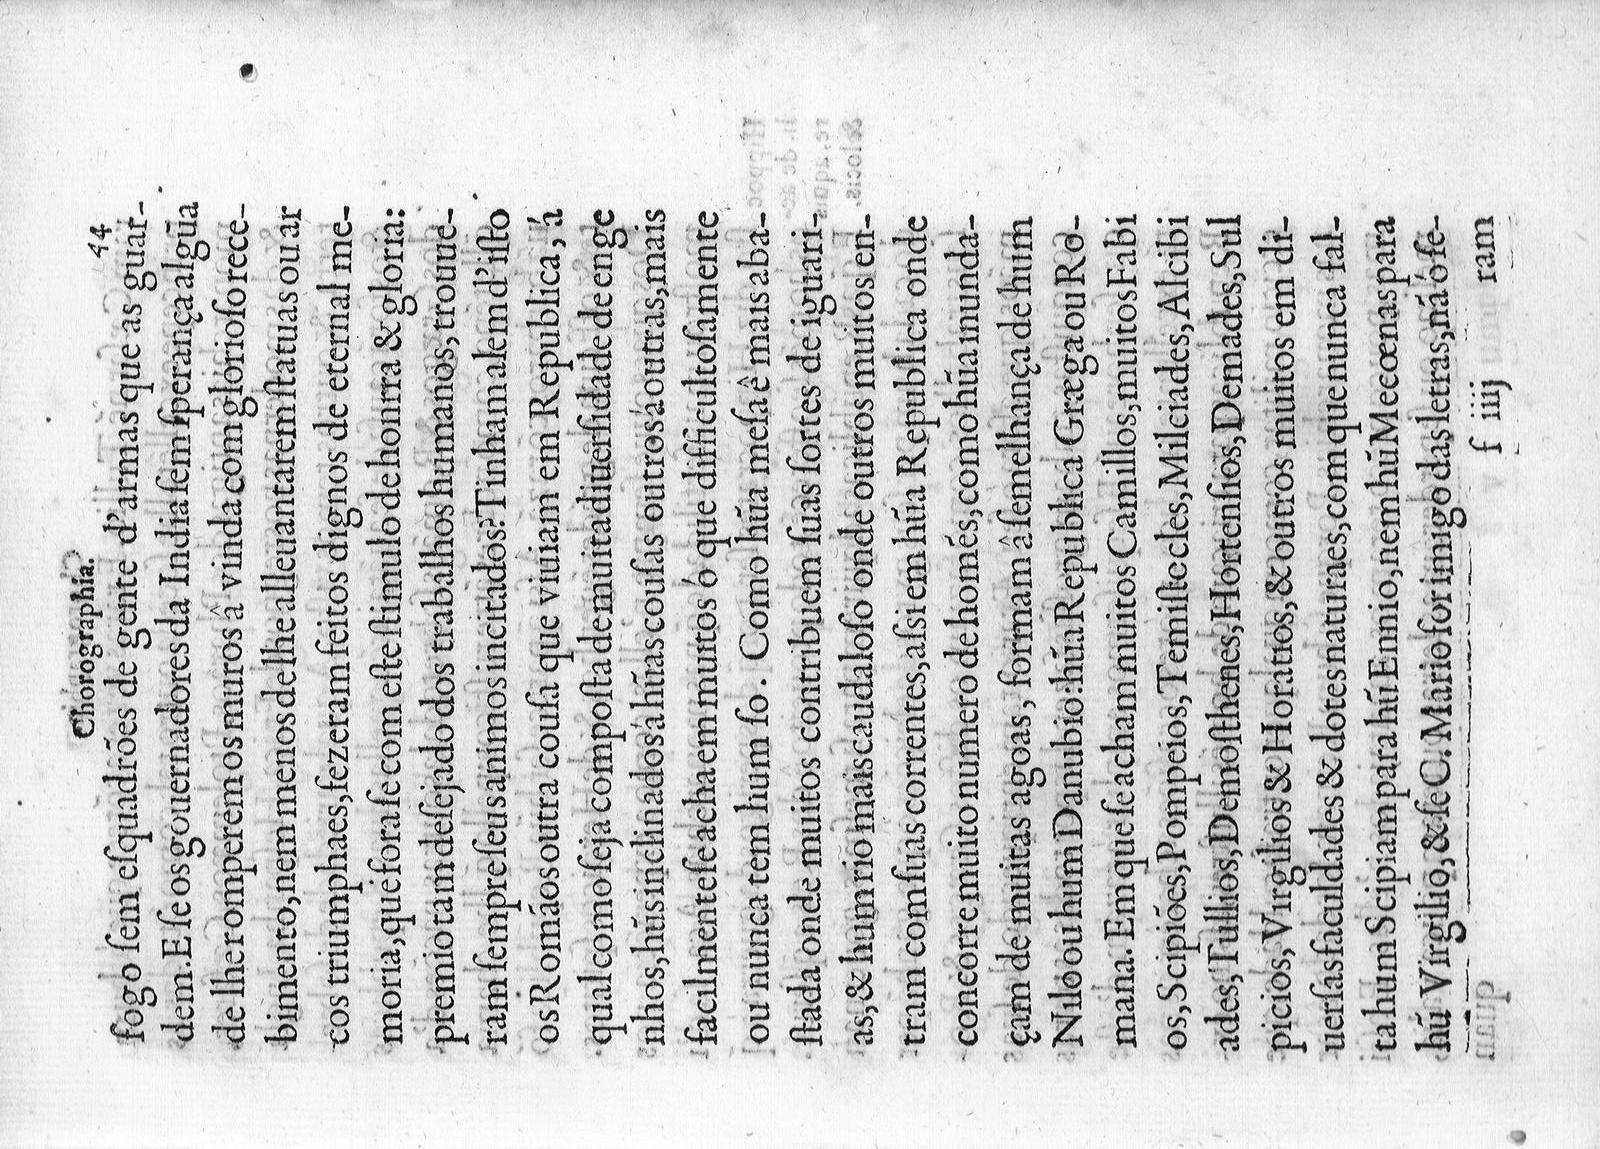 Chorographia. 44
fogo ſem eſquadrões de gente d'armas que as guar-
dem. E ſe os gouernadores da India ſem ſperança algũa
de lhe romperem os muros â vinda com glorioſo rece-
bimento, nem menos de lhe alleuantarem ſtatuas ou ar
cos triumphaes, fezeram feitos dignos de eternal me-
moria, que fora ſe com eſte ſtimulo de honrra & gloria:
premio tam deſejado dos trabalhos humanos, trouue-
ram ſempre ſeus animos incitados? Tinham alem d'iſto
os Romãos outra couſa que viuiam em Republica, á
qual como ſeja compoſta de muita diuerſidade de enge
nhos, hũs inclinados á hũas couſas outros á outras, mais
facilmente ſe acha em muitos ó que difficultoſamente
ou nunca tem hum ſo. Como hũa meſa ê mais aba-
ſtada onde muitos contribuem ſuas ſortes de iguari-
as, & hum rio mais caudaloſo onde outros muitos en-
tram com ſuas correntes, aſsi em hũa Republica onde
concorre muito numero de homés, como hũa inunda-
çam de muitas agoas, formam â ſemelhança de hum
Nilo ou hum Danubio: hũa Republica Græga ou Ro-
mana. Em que ſe acham muitos Camillos, muitos Fabi
os, Scipiões, Pompeios, Temiſtocles, Milciades, Alcibi
ades, Tullios, Demoſthenes, Hortenſios, Demades, Sul
picios, Virgilios & Horatios, & outros muitos em di-
uerſas faculdades & dotes naturaes, com que nunca fal-
ta hum Scipiam para hũ Ennio, nem hũ Mecœnas para
hũ Virgilio, & ſe C. Mario for imigo das letras, nã ó ſe-
f iiij ram